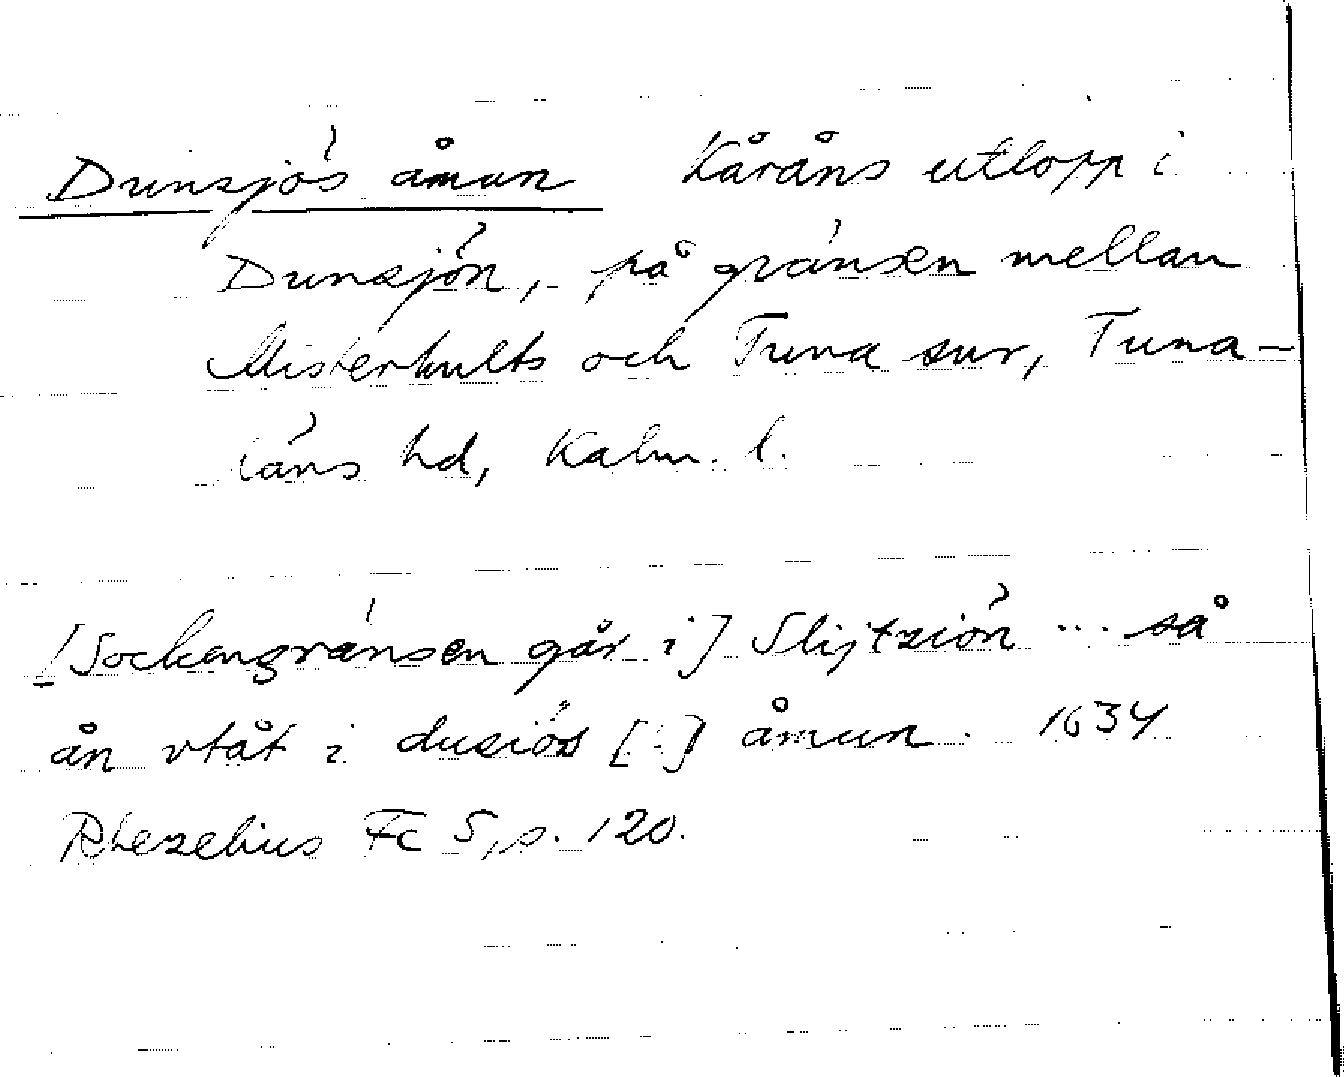 Dunsjös åmun Kåråns utlopp i
Dunsjön, på gränsen mellan
Misterhults och Tuna snr, Tuna-
läns hd, Kalm. l.
[Sockengränsen går i] Slijtziön ... så
ån vtåt i dusiös [!] åmun. 1634
Rhezelius Fc 5, s. 120.